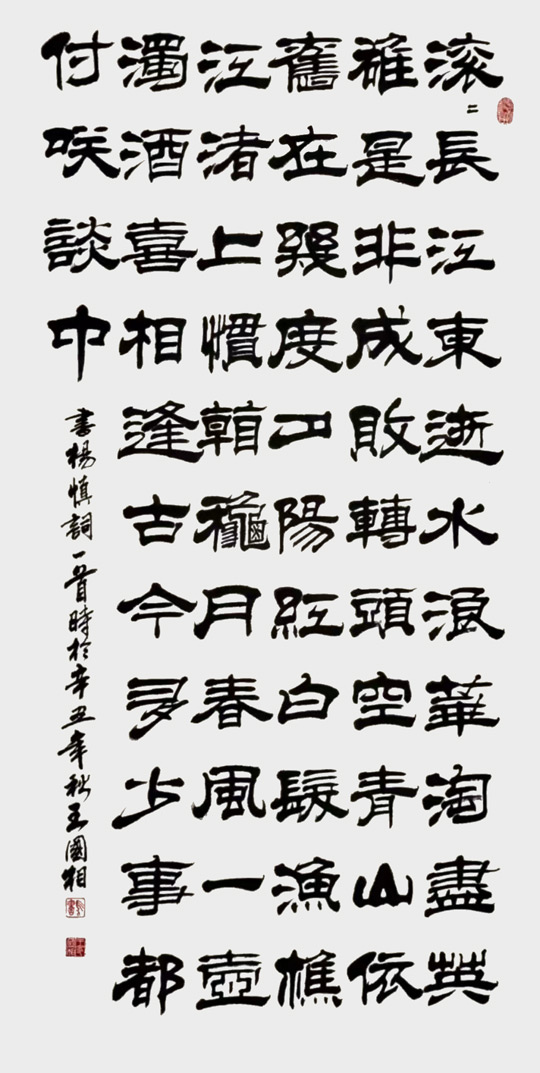 滚〻長江東逝水浪華淘盡英
雄是非成敗轉頭空青山依
舊在幾度夕陽紅白髮漁樵
江渚上慣看龝月春風一壺
濁酒喜相逢古今多少事都
付咲談中
書楊慎詞一首時於辛丑年秋王國相